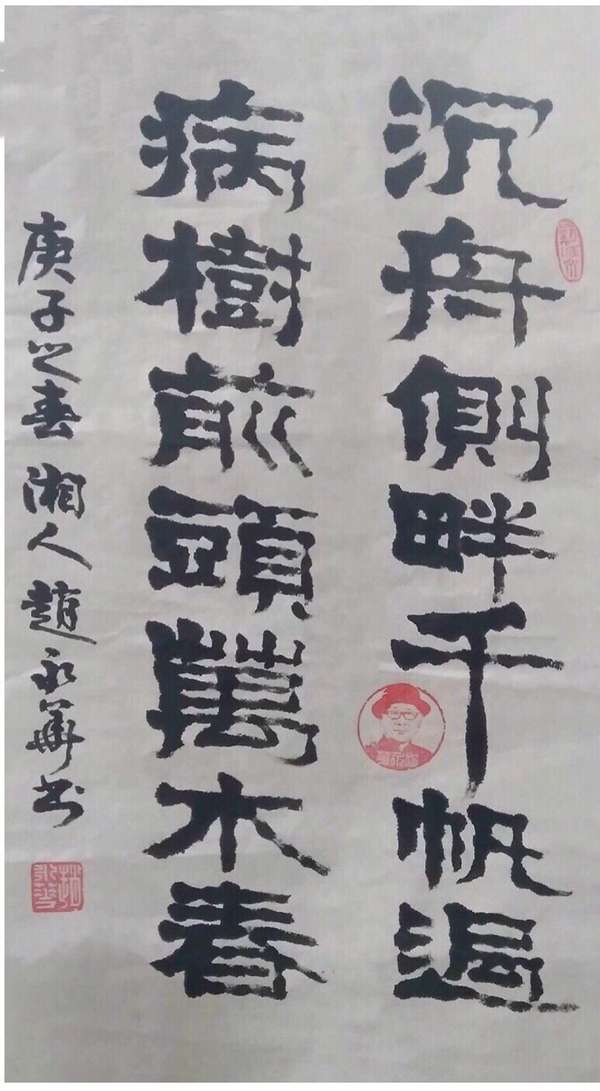 沉舟側畔千帆過
病樹前頭萬木春
庚子之春 湘人趙永華书
趙永華